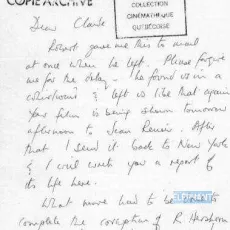 COPIE ARCHIVE
COLLECTION
CINÉMATHÈQUE
QUÉBÉCOISE
Dear Claude
Robert gave me this to mail
at once when he left. Please forgive
me for the delay. He found us in a
whirlwind & left is like that again
Your film is being shown tomorrow
afternoon to Jean Renoir. After
that I send it back to New York
& I will write you a report of
its life here.
What more need to be
complete the conception of R. Hershorn